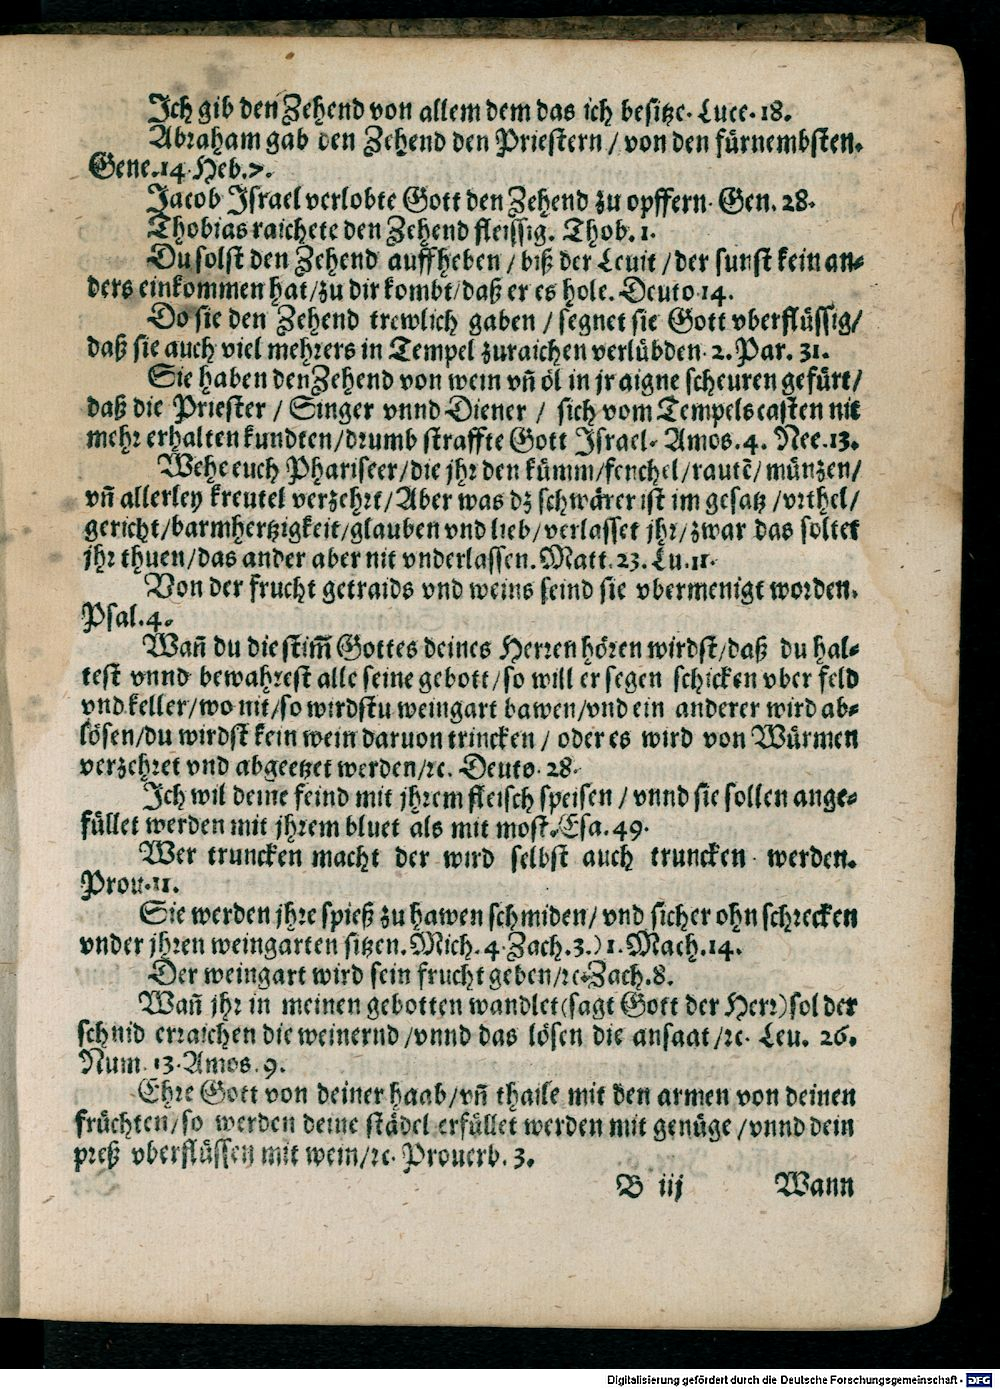 Ich gib den Zehend von allem dem das ich besitze. Luce. 18.
Abraham gab den Zehend den Priestern / von den fürnembsten.
Gene. 14. Heb. 7.
Jacob Israel verlobte Gott den Zehend zu opffern. Gen. 28.
Thobias raichete den Zehend fleissig. Thob. 1.
Du solst den Zehend auffheben / biß der Leuit / der sunst kein an-
ders einkommen hat / zu dir kombt / daß er es hole. Deuto 14.
Do sie den Zehend trewlich gaben / segnet sie Gott vberflüssig /
daß sie auch viel mehrers in Tempel zuraichen verlübden. 2. Par. 31.
Sie haben den Zehend von wein vñ öl in jr aigne scheuren gefürt /
daß die Priester / Singer vnnd Diener / sich vom Tempelscasten nit
mehr erhalten kundten / drumb straffte Gott Israel. Amos. 4. Nee. 13.
Wehe euch Phariseer / die jhr den kümm / fenchel / rautē / münzen /
vñ allerley kreutel verzehrt / Aber was dz schwärer ist im gesatz / vrthel /
gericht / barmhertzigkeit / glauben vnd lieb / verlasset jhr / zwar das soltet
jhr thuen / das ander aber nit vnderlassen. Matt. 23. Lu. 11.
Von der frucht getraids vnd weins seind sie vbermenigt worden.
Psal. 4.
Wañ du die stim̄ Gottes deines Herren hören wirdst / daß du hal-
test vnnd bewahrest alle seine gebott / so will er segen schicken vber feld
vnd keller / wo nit / so wirdstu weingart bawen / vnd ein anderer wird ab-
lösen / du wirdst kein wein daruon trincken / oder es wird von Würmen
verzehret vnd abgeetzet werden / ꝛc. Deuto. 28.
Ich wil deine feind mit jhrem fleisch speisen / vnnd sie sollen ange-
füllet werden mit jhrem bluet als mit most. Esa. 49.
Wer truncken macht der wird selbst auch truncken werden.
Prou. 11.
Sie werden jhre spieß zu hawen schmiden / vnd sicher ohn schrecken
vnder jhren weingarten sitzen. Mich. 4. Zach. 3.) 1. Mach. 14.
Der weingart wird sein frucht geben / ꝛc. Zach. 8.
Wañ jhr in meinen gebotten wandlet (sagt Gott der Herr) sol der
schnid erraichen die weinernd / vnnd das lösen die ansaat / ꝛc. Leu. 26.
Num. 13. Amos. 9.
Ehre Gott von deiner haab / vñ thaile mit den armen von deinen
früchten / so werden deine städel erfüllet werden mit genüge / vnnd dein
preß vberflüssen mit wein / ꝛc. Prouerb. 3.
B iij Wann
Digitalisierung gefördert durch die Deutsche Forschungsgemeinschaft - DFG